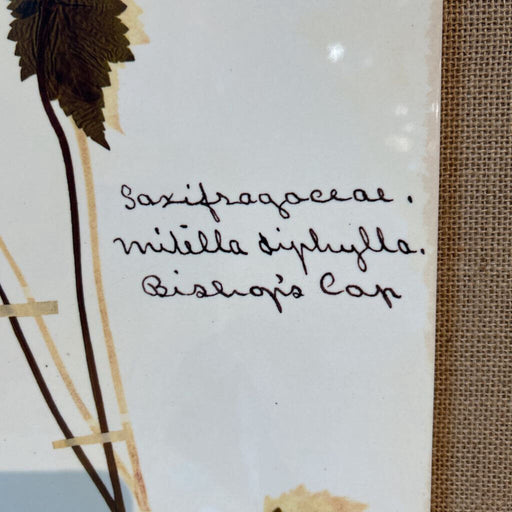 Saxifragaceae.
Mitella diphylla.
Bishop's Cap